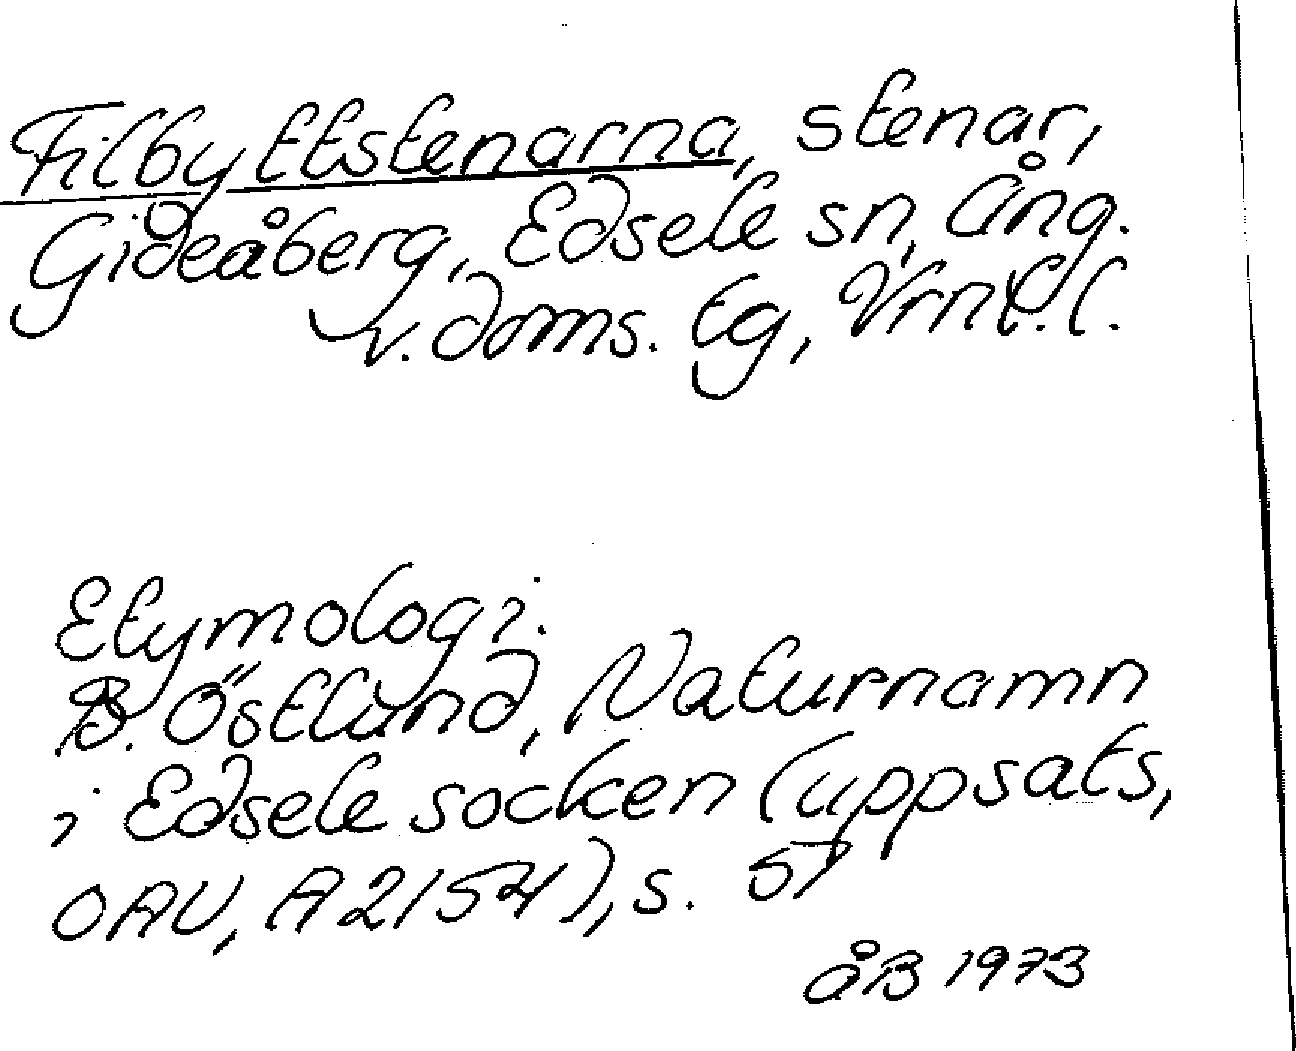 Filbyttstenarna, stenar,
Gideåberg, Edsele sn, Ång.
v. doms. tg, Vrnl. l.
Etymologi.
B. Östlund, Naturnamn
i Edsele socken (uppsats,
OAU, A 2154), s. 57
ÅB 1973